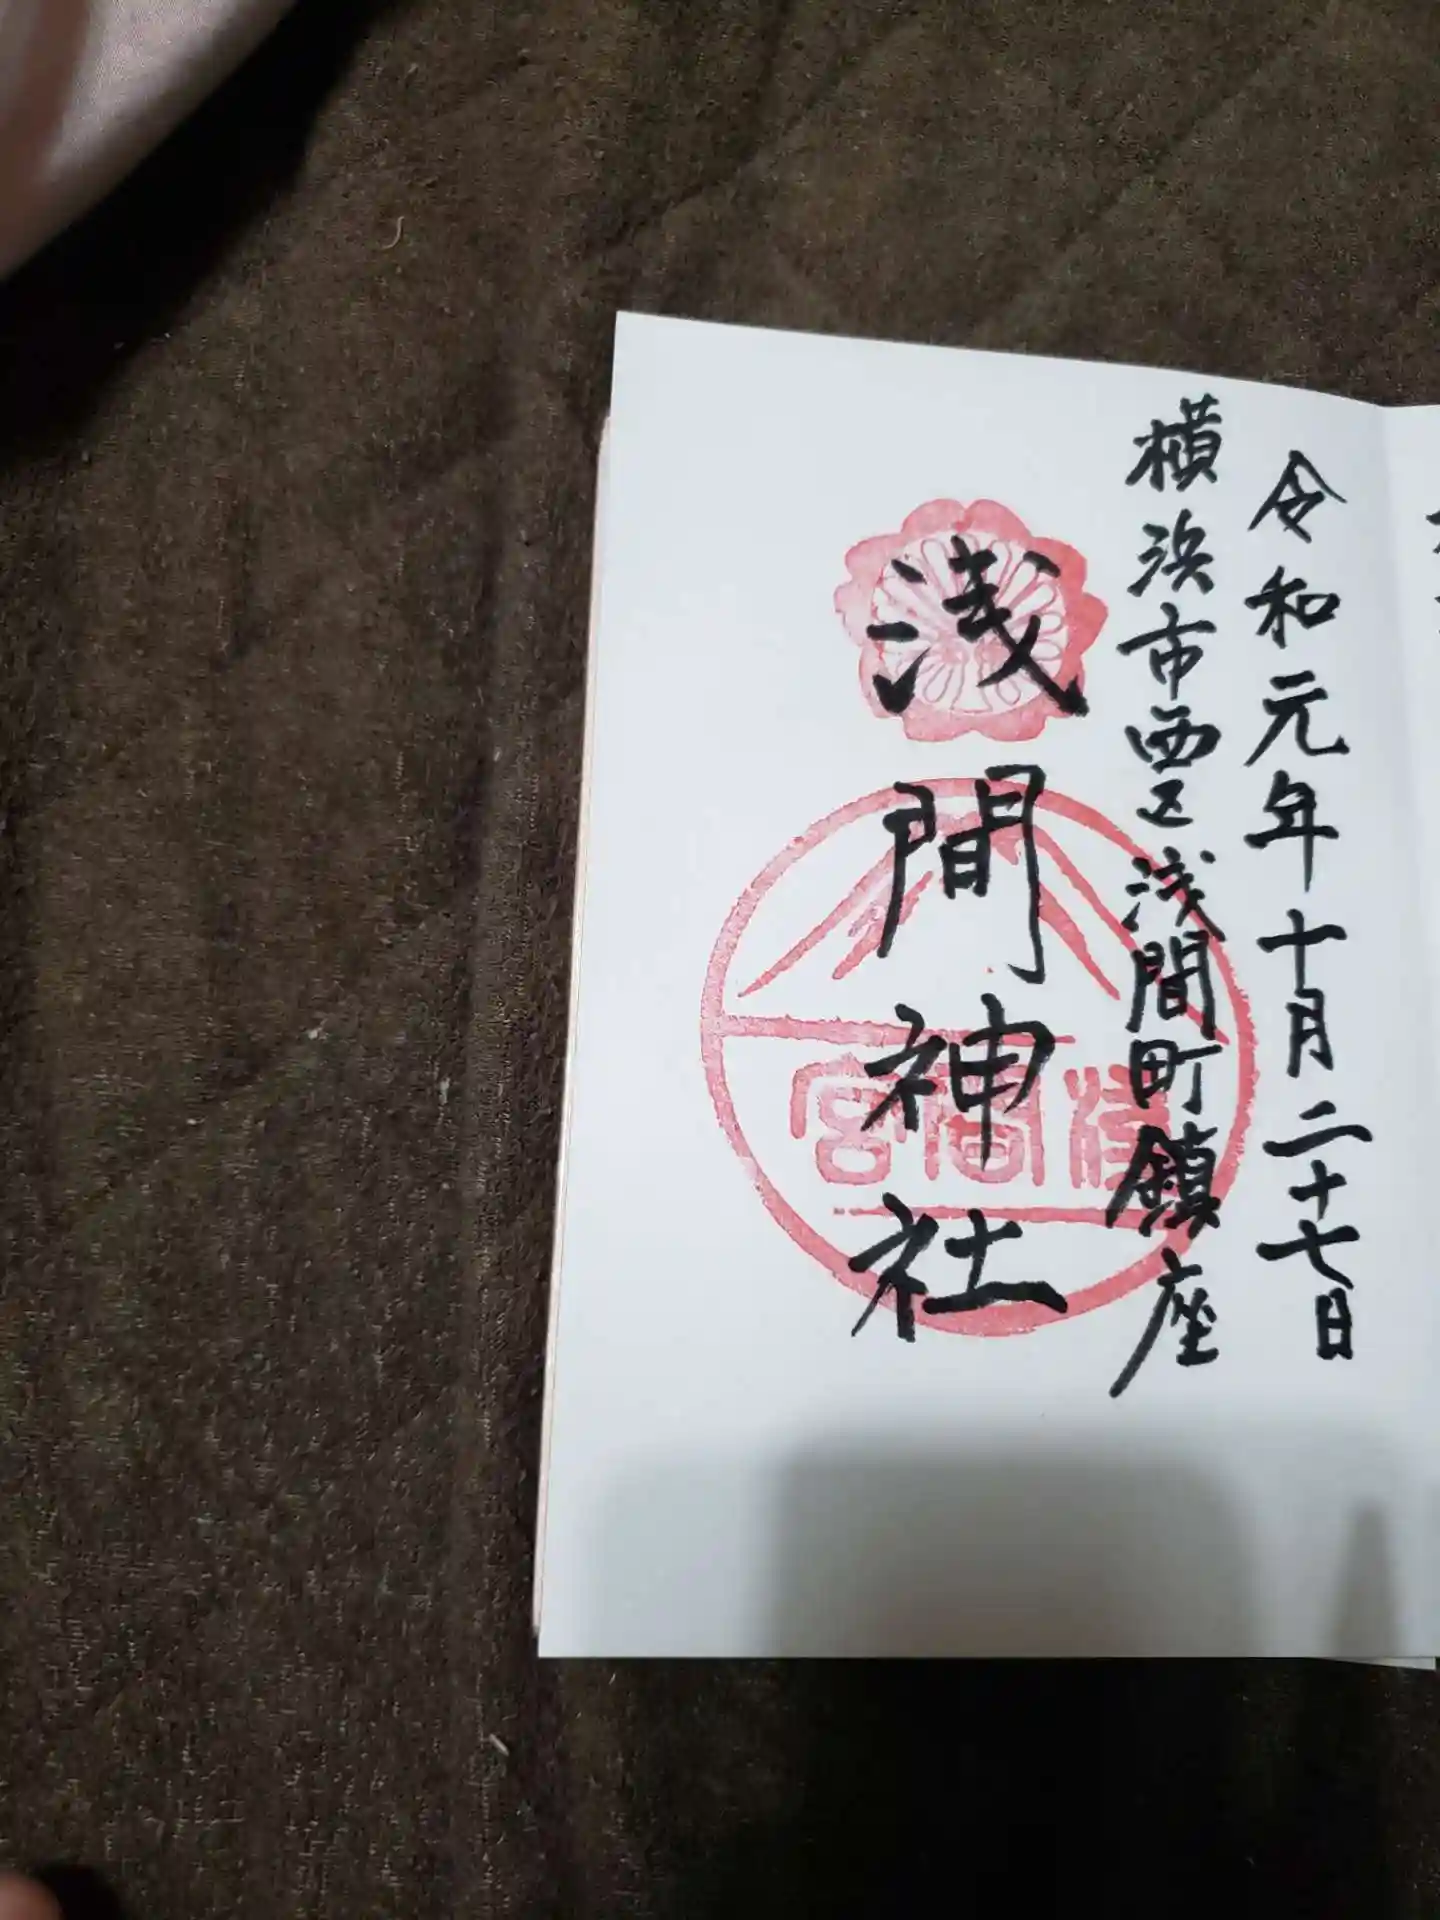 令和元年十月二十七日
横浜市西区浅間町鎮座
浅間神社
浅間宮